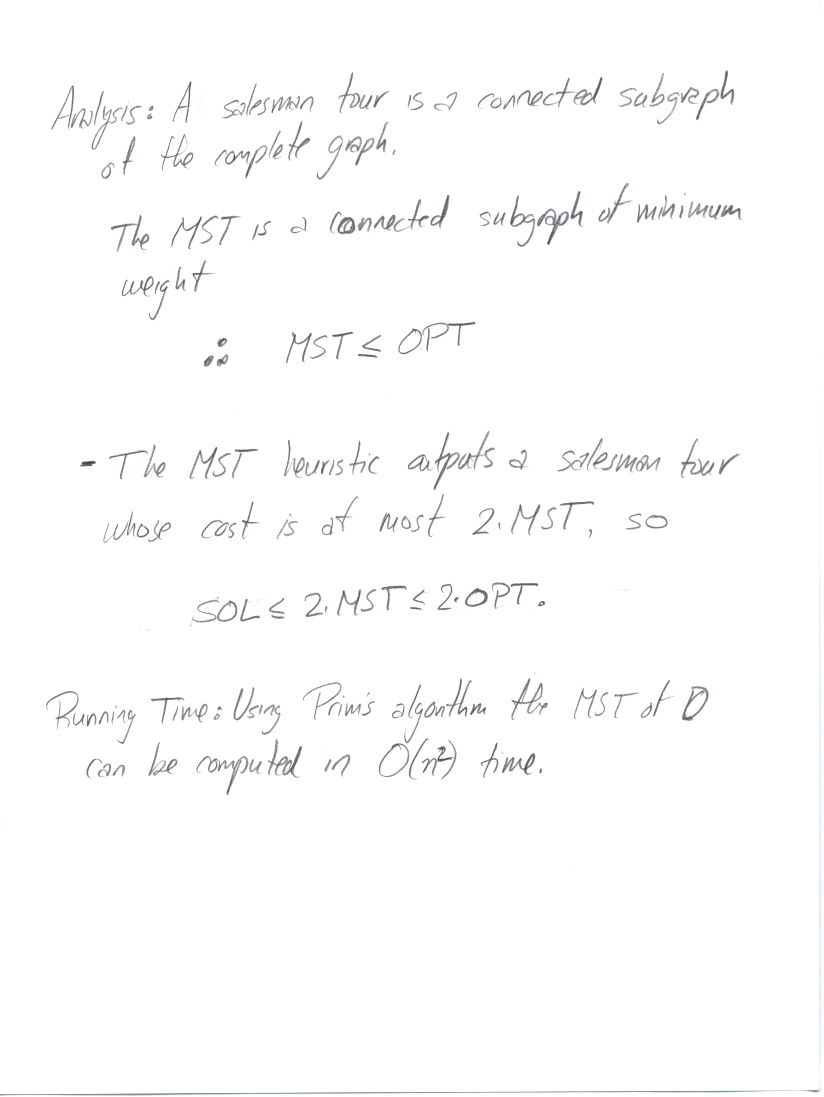 Analysis: A salesman tour is a connected subgraph
of the complete graph.
The MST is a connected subgraph of minimum
weight
∴ MST ≤ OPT
- The MST heuristic outputs a salesman tour
whose cost is at most 2.MST, so
SOL ≤ 2.MST ≤ 2.OPT.
Running Time: Using Prim's algorithm the MST of D
can be computed in O(n²) time.